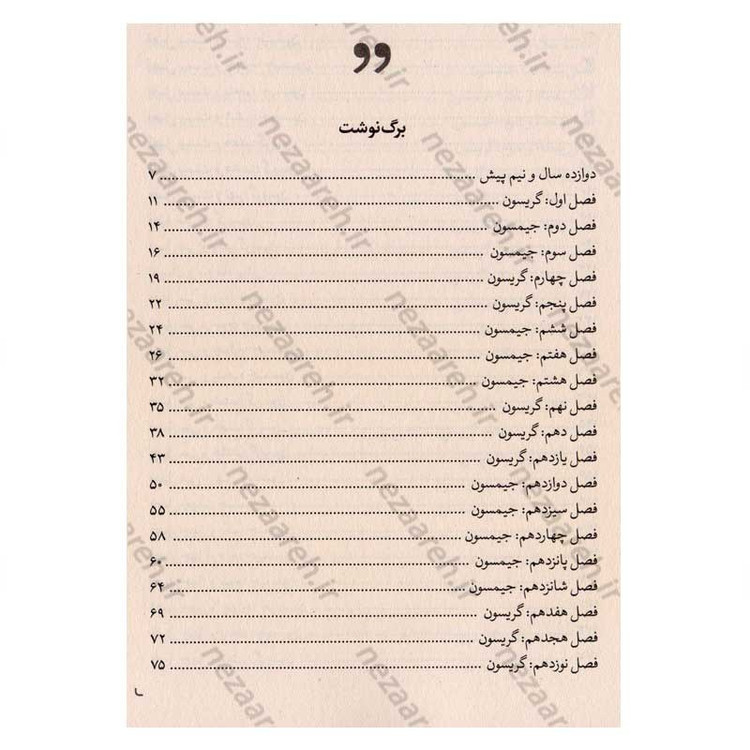 برگ‌نوشت
دوازده سال و نیم پیش ........ ۷
فصل اول: گریسون ........ ۱۱
فصل دوم: جیمسون ........ ۱۴
فصل سوم: جیمسون ........ ۱۶
فصل چهارم: گریسون ........ ۱۹
فصل پنجم: گریسون ........ ۲۲
فصل ششم: جیمسون ........ ۲۴
فصل هفتم: جیمسون ........ ۲۶
فصل هشتم: جیمسون ........ ۳۲
فصل نهم: گریسون ........ ۳۵
فصل دهم: گریسون ........ ۳۸
فصل یازدهم: گریسون ........ ۴۳
فصل دوازدهم: جیمسون ........ ۵۰
فصل سیزدهم: جیمسون ........ ۵۵
فصل چهاردهم: جیمسون ........ ۵۸
فصل پانزدهم: جیمسون ........ ۶۰
فصل شانزدهم: جیمسون ........ ۶۴
فصل هفدهم: گریسون ........ ۶۹
فصل هجدهم: گریسون ........ ۷۲
فصل نوزدهم: گریسون ........ ۷۵
nezaareh.ir